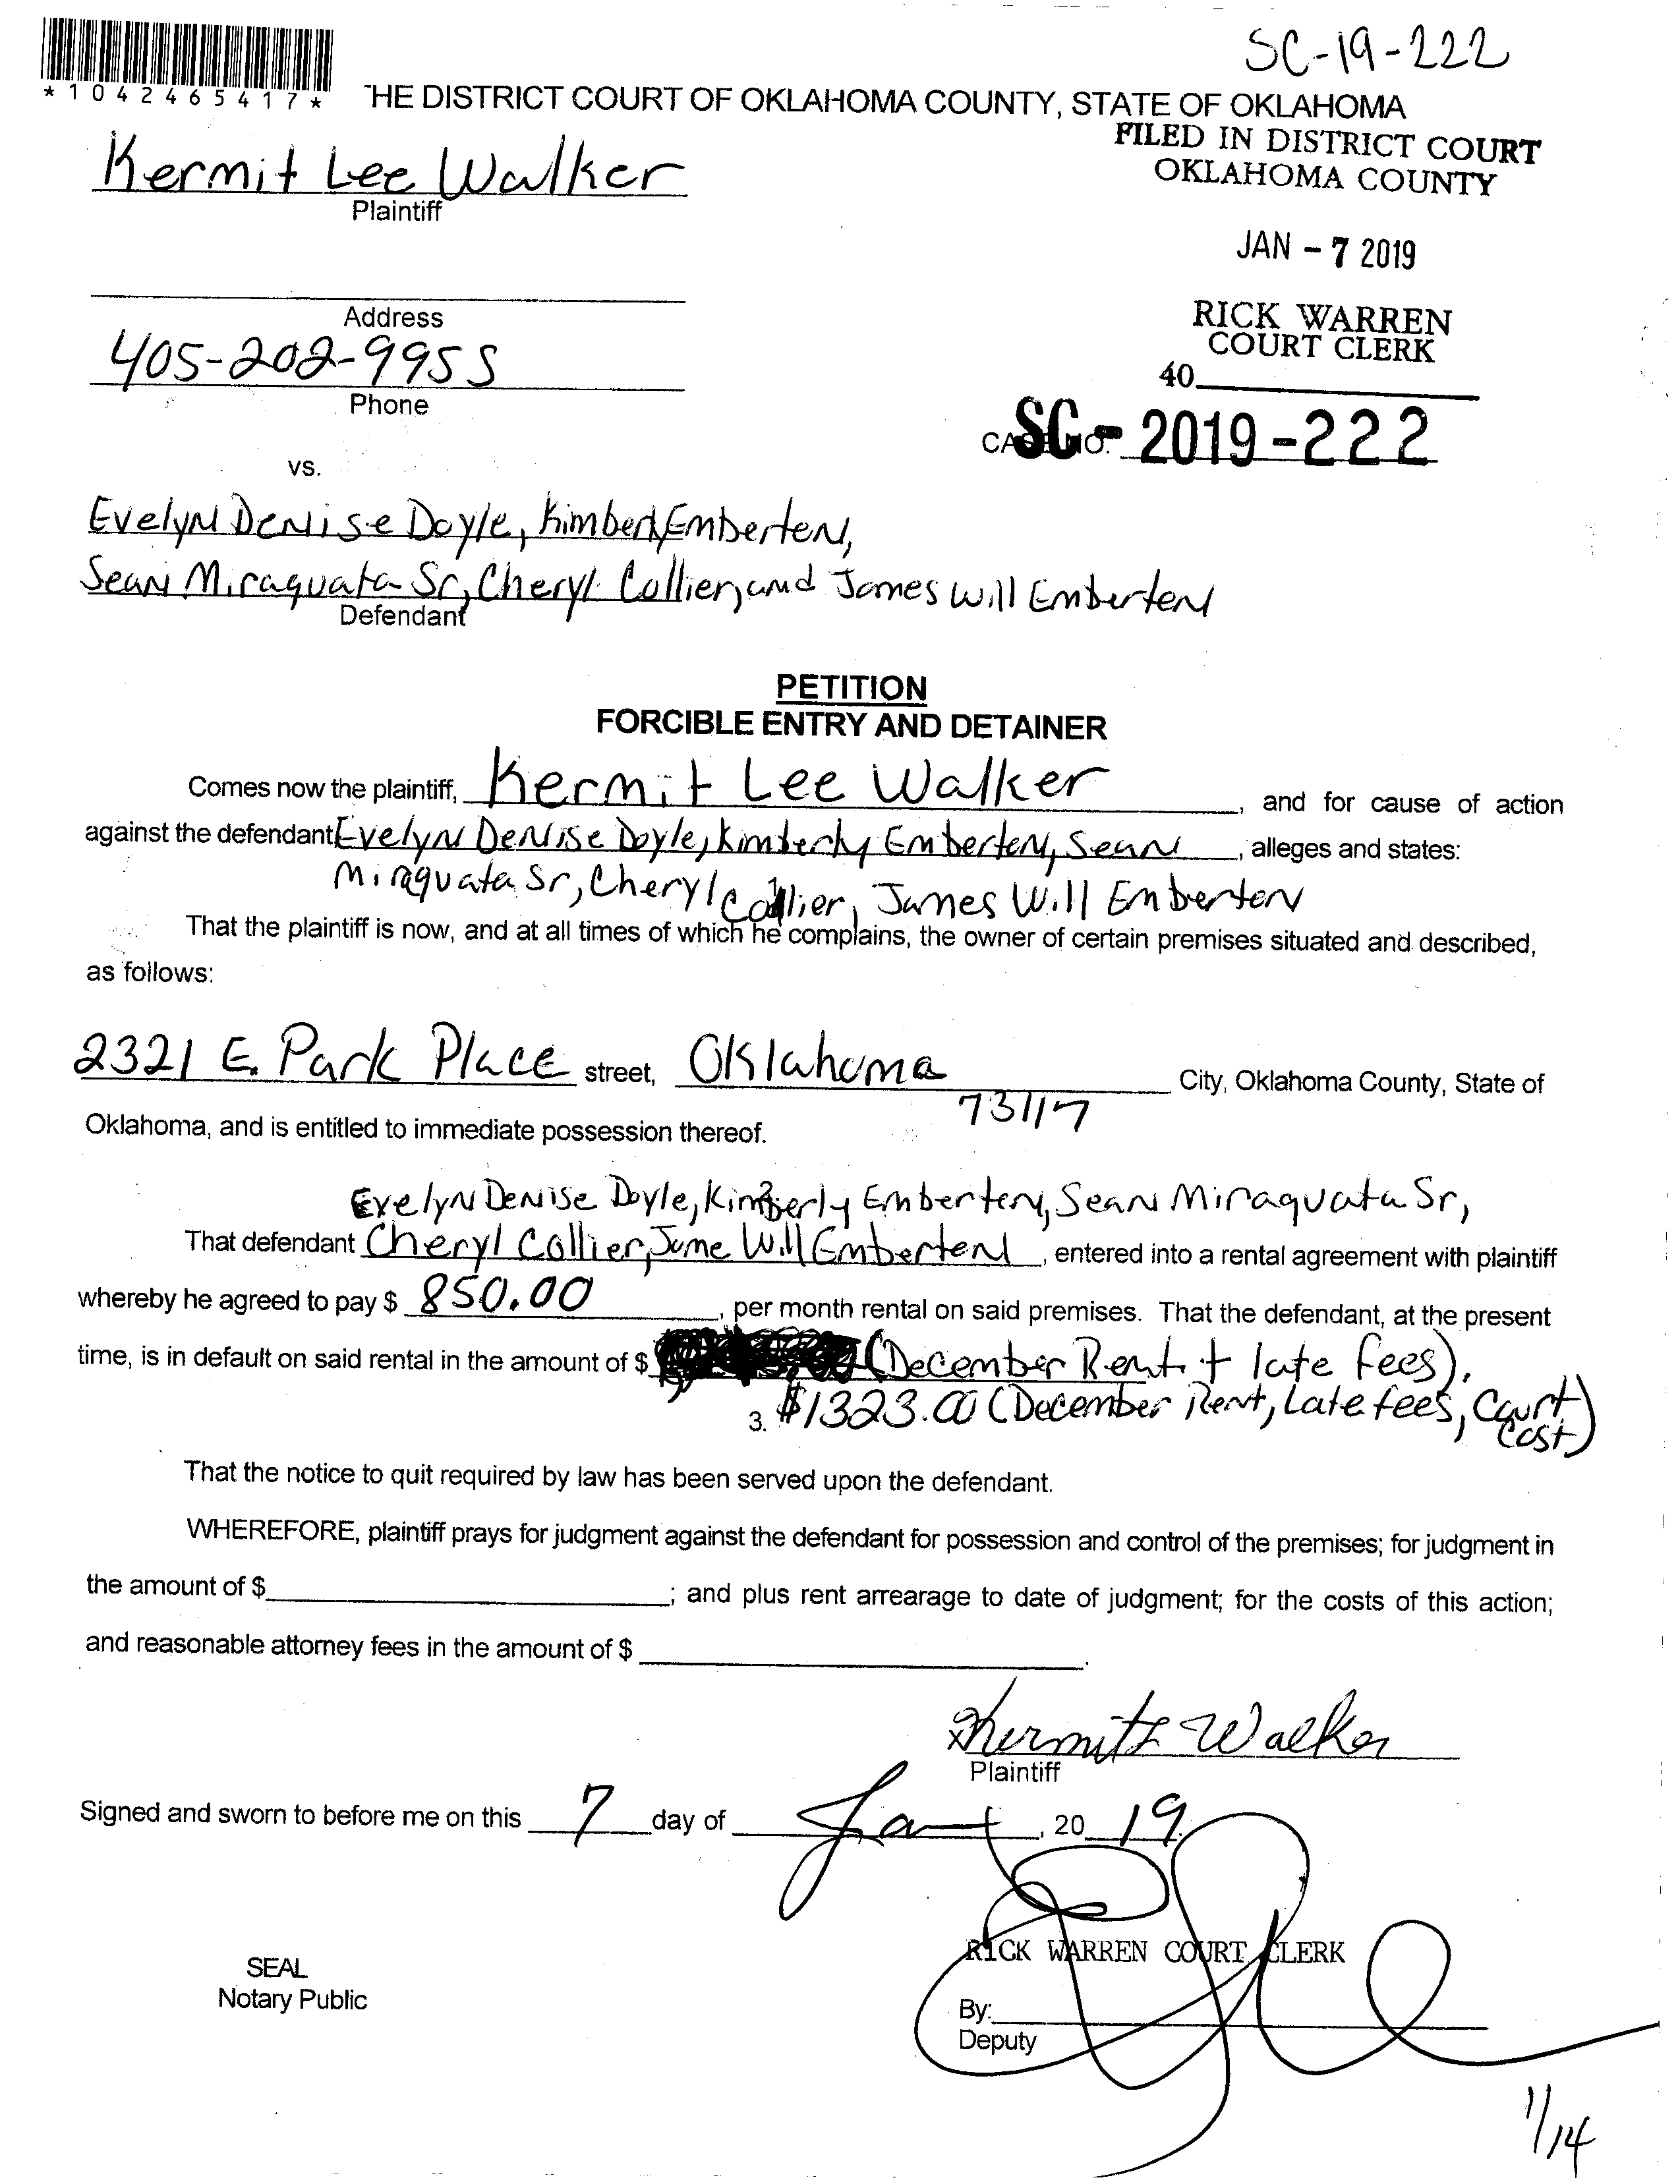 SC-19-222
*1042465417*
HE DISTRICT COURT OF OKLAHOMA COUNTY, STATE OF OKLAHOMA
FILED IN DISTRICT COURT
OKLAHOMA COUNTY
Kermit Lee Walker
Plaintiff
JAN - 7 2019
Address
RICK WARREN
COURT CLERK
405-202-9955
40
Phone
CASE NO. SC - 2019 - 222
vs.
Evelyn Denise Doyle, Kimberly Emberten,
Sean Miraquata Sr, Cheryl Collier, and James Will Emberten
Defendant
PETITION
FORCIBLE ENTRY AND DETAINER
Comes now the plaintiff, Kermit Lee Walker, and for cause of action
against the defendant Evelyn Denise Doyle, Kimberly Emberten, Sean, alleges and states:
Miraquata Sr, Cheryl Collier, James Will Emberten
That the plaintiff is now, and at all times of which he complains, the owner of certain premises situated and described,
as follows:
2321 E. Park Place street, Oklahoma City, Oklahoma County, State of
73117
Oklahoma, and is entitled to immediate possession thereof.
Evelyn Denise Doyle, Kimberly Emberten, Sean Miraquata Sr,
That defendant Cheryl Collier, Jame Will Emberten, entered into a rental agreement with plaintiff
whereby he agreed to pay $ 850.00, per month rental on said premises. That the defendant, at the present
time, is in default on said rental in the amount of $ (December Rent + late fees),
3. $1323.00 (December Rent, Late fees, Court
Cost)
That the notice to quit required by law has been served upon the defendant.
WHEREFORE, plaintiff prays for judgment against the defendant for possession and control of the premises; for judgment in
the amount of $ ; and plus rent arrearage to date of judgment; for the costs of this action;
and reasonable attorney fees in the amount of $ .
x Kermit L Walker
Plaintiff
Signed and sworn to before me on this 7 day of Jan, 20 19.
RICK WARREN COURT CLERK
SEAL
Notary Public
By:
Deputy
1/14